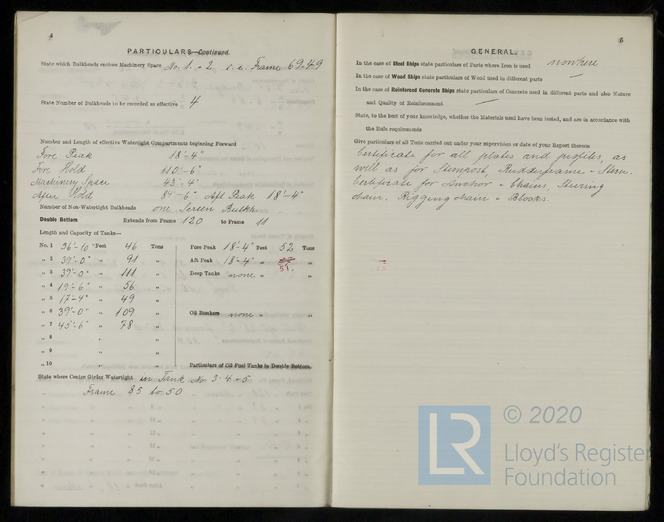 4
PARTICULARS—Continued.
State which Bulkheads enclose Machinery Space No. 1 - 2 i.e. Frame 69.49
State Number of Bulkheads to be recorded as effective 4
Number and Length of effective Watertight Compartments beginning Forward
Fore Peak 18'-4"
Fore Hold 110'-6"
Machinery Space 43'-4"
After Hold 84'-6" Aft Peak 18'-4"
Number of Non-Watertight Bulkheads one Screen Bulkh
Double Bottom Extends from Frame 120 to Frame 11
Length and Capacity of Tanks—
No. 1 36'-10" Feet 46 Tons Fore Peak 18'-4" Feet 52 Tons
" 2 39'-0" " 91 " Aft Peak 18'-4" " 51. "
" 3 39'-0" " 111 " Deep Tanks none " "
" 4 19'-6" " 56 "
" 5 17'-4" " 49 "
" 6 39'-0" " 109 " Oil Bunkers none " "
" 7 45'-6" " 78 "
" 8 " "
" 9 " "
" 10 " " Particulars of Oil Fuel Tanks in Double Bottom.
State where Centre Girder Watertight in Tank No. 3-4-5
Frame 85 to 50
5
GENERAL.
In the case of Steel Ships state particulars of Parts where Iron is used nowhere
In the case of Wood Ships state particulars of Wood used in different parts —
In the case of Reinforced Concrete Ships state particulars of Concrete used in different parts and also Nature
and Quality of Reinforcement —
State, to the best of your knowledge, whether the Materials used have been tested, and are in accordance with
the Rule requirements
Give particulars of all Tests carried out under your supervision or date of your Report thereon
Certificate for all plates and profiles, as
well as for Sternpost, Rudderframe - Stem.
Certificate for Anchor - Chains, Steering
chain. Rigging chain - Blocks.
© 2020
LR
Lloyd's Register
Foundation